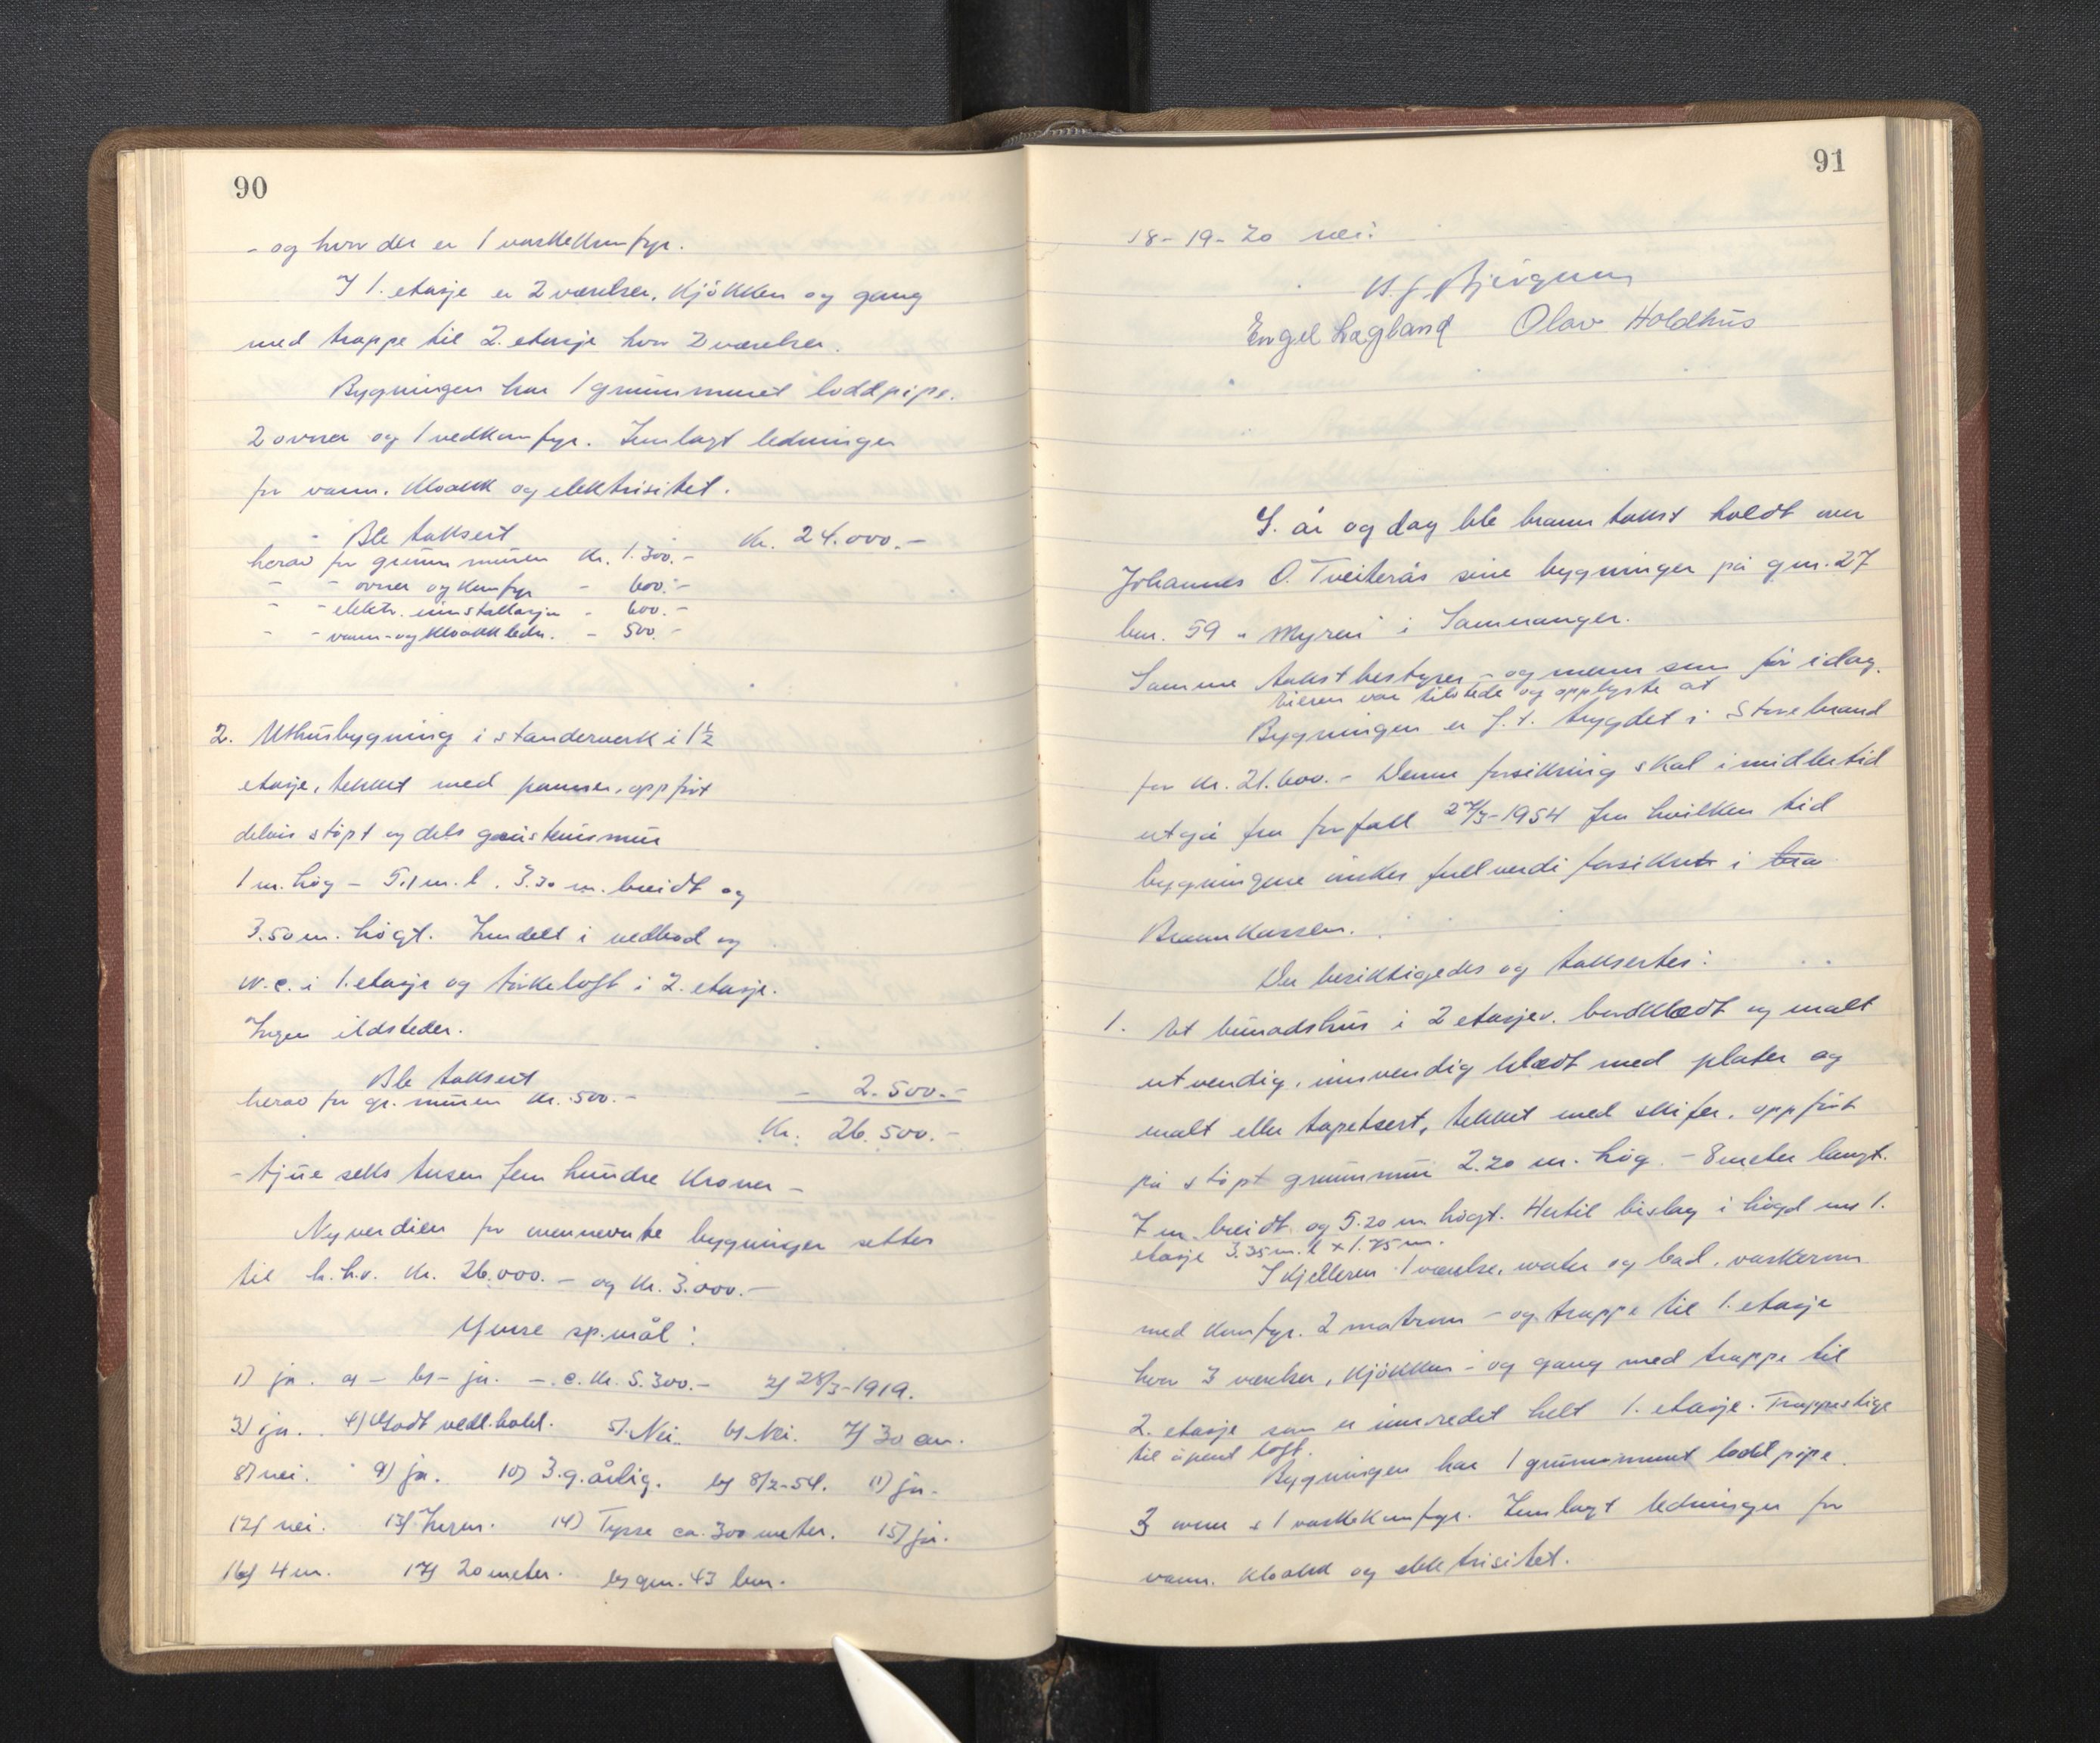 90
- og hvor der er 1 vaskekomfyr.
I 1. etasje er 2 værelser, kjökken og gang
med trappe til 2. etasje hvor 2 værelser.
Bygningen har 1 grunnmuret loddpipe.
2 ovner og 1 vedkomfyr. Innlagt ledninger
for vann, kloakk og elektrisitet.
Ble taksert Kr. 24.000.-
herav for grunnmuren Kr. 1.300.-
- - ovner og komfyr - 600.-
- - elektr. innstallasjon - 600.-
- - vann- og kloakkledn. - 500.-
2. Uthusbygning i standerverk i 1½
etasje, tekket med panner, oppfört
delvis stöpt og dels gråsteinsmur
1 m. hög - 5.1 m. l. 3.30 m. breidt og
3.50 m. högt. Inndelt i vedbod og
w.c. i 1. etasje og törkeloft i 2. etasje.
Ingen ildsteder.
Ble taksert
herav for gr. muren Kr. 500.- - 2.500.-
Kr. 26.500.-
- tjue seks tusen fem hundre kroner -
Nyverdien for nennevnte bygninger settes
til h.h.v. Kr. 26.000.- og Kr. 3.000.-
Ymse sp.mål:
1) ja. a - b - ja. - c. Kr. 5.300.- 2) 28/3-1919.
3) ja. 4) Godt vedl.hold. 5) Nei. 6) Nei. 7) 30 cm.
8) nei. 9) ja. 10) 3.g. årlig. b) 8/2-54. 11) ja.
12) nei. 13) Ingen. 14) Tysse ca. 300 meter. 15) ja.
16) 4 m. 17) 20 meter. b) gnr. 43 bnr.
91
18-19-20 nei.
Engel Lægland Olav Holdhus
I. år og dag ble branntakst holdt over
Johannes O. Tveiterås sine bygninger på gnr. 27
bnr. 59 "Myren" i Samnanger.
Samme takstbestyrer - og menn som för idag.
Eieren var tilstede og opplyste at
Bygningen er f.t. trygdet i Storebrand
for Kr. 21.600.- Denne forsikring skal imidlertid
utgå fra forfall 27/3-1954 fra hvilken tid
bygningene önskes fullverdi forsikret i bra
Brannkassen.
Der besiktigedes og taksertes:
1. Et bunadshus i 2 etasjer. bordklædt og malt
utvendig, innvendig klædt med plater og
malt eller tapetsert, tekket med skifer, oppfört
på stöpt grunnmur 2.20 m. hög. - 8 meter langt.
7 m. breidt og 5.20 m. högt. Hertil bislag i högd m 1.
etasje 3.35 m. l x 1.75 m.
I kjelleren 1 værelse, water og bad, vaskerom
med komfyr. 2 matrom - og trappe til 1. etasje
hvor 3 værelser, kjökken - og gang med trappe til
2. etasje som er innredet helt 1. etasje. Trappestige
til åpent loft.
Bygningen har 1 grunnmuret loddpipe.
3 ovner & 1 vaskekomfyr. Innlagt ledninger for
vann, kloakk og elektrisitet.